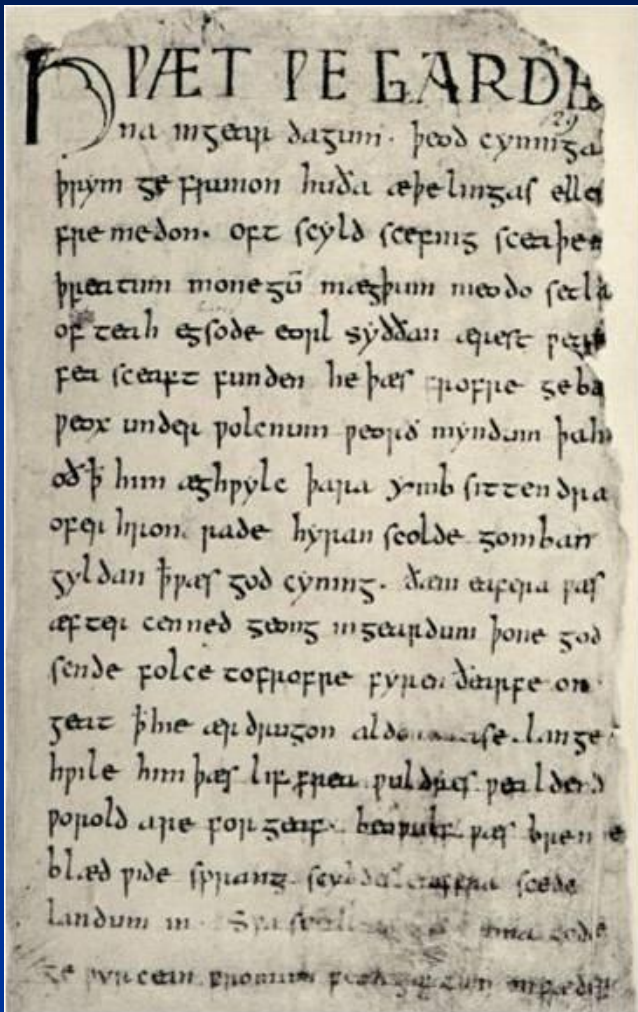 HǷÆT ǷE GARDE
129
na ingear dagum. þeod cyninga
þrym ge frunon huða æþelingas elle
fre medon. oft scyld scefing sceaþe
þreatum monegū mægþum meodo setla
of teah egsode eorl syððan ærest ƿear
fea sceaft funden he þæs frofre geba
ƿeox under ƿolcnum ƿeorð myndum þah
oð ꝥ him æghƿylc þara ymb sittendra
ofer hron rade hyran scolde gomban
gyldan ꝥ ƿæs god cyning. ðæm eafera ƿæs
æfter cenned geong ingeardum þone god
sende folce tofrofre fyren ðearfe on
geat ꝥ hie ær drugon lange
hƿile him þæs lif frea ƿuldres ƿealdend
ƿorold are for geaf. beoƿulf ƿæs breme
blæd ƿide sprang scyldes eafera scede
landum in. Sƿa sceal guma gode
ge ƿyrcean fromum feoh giftum